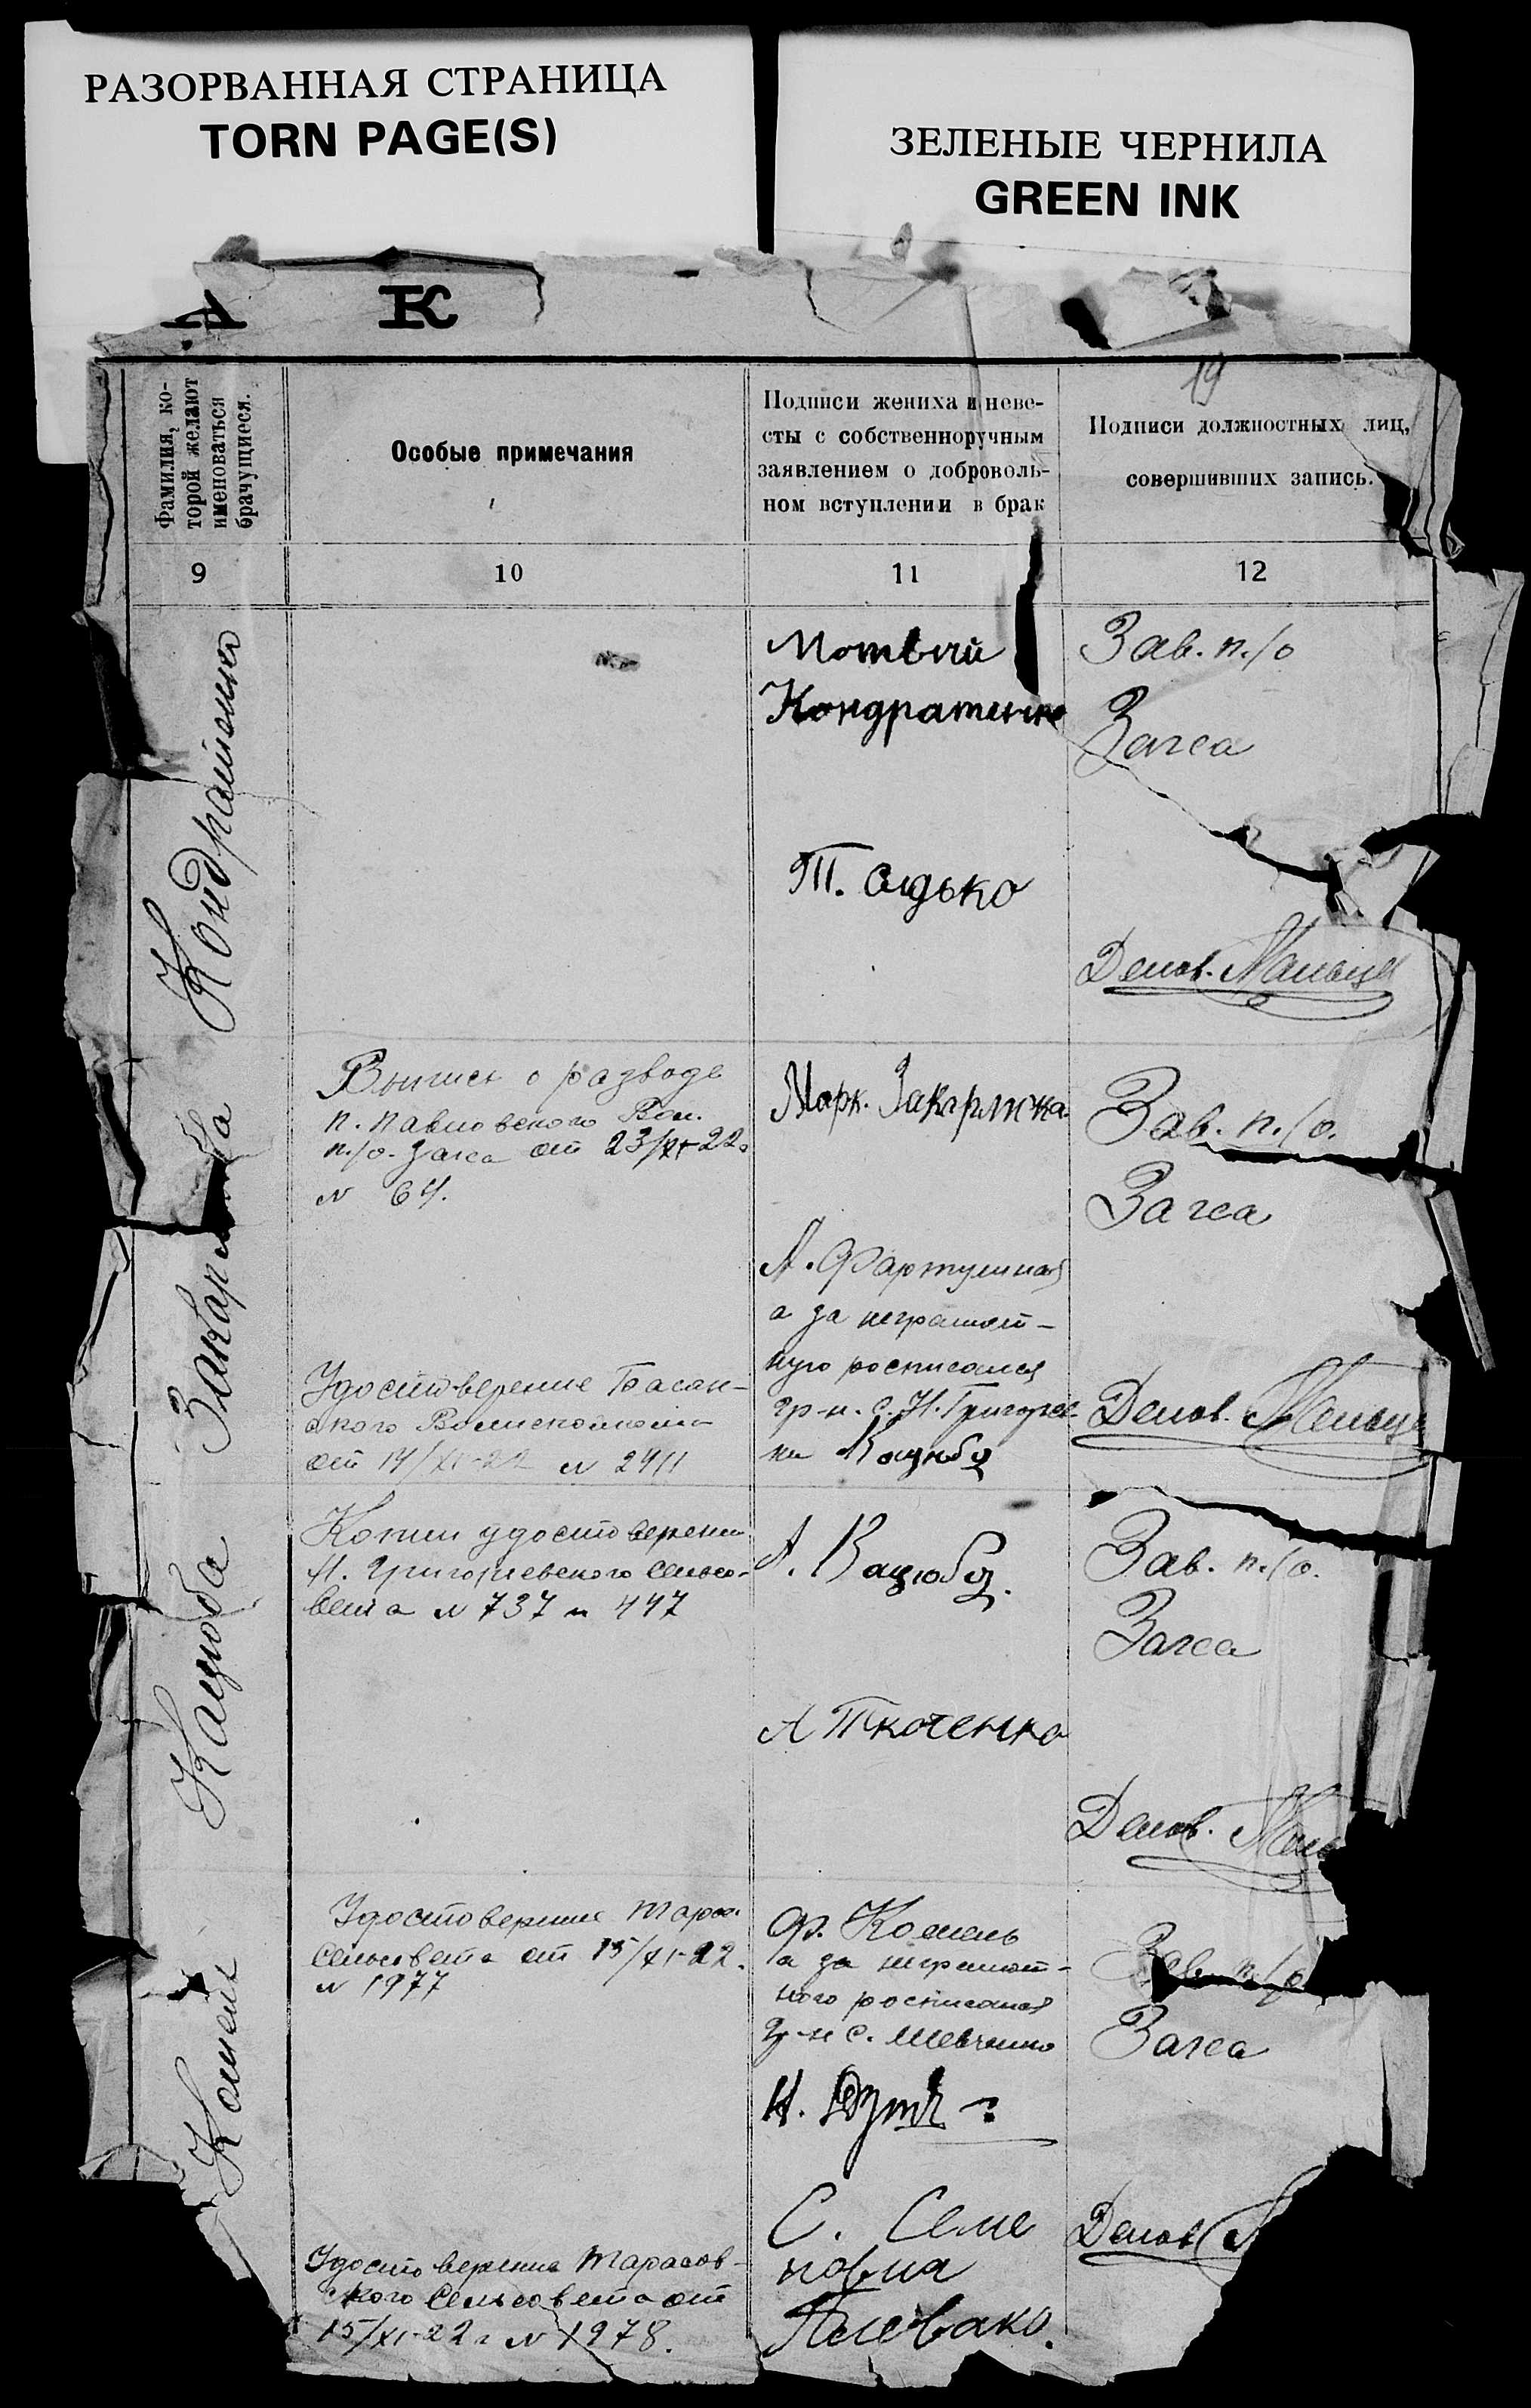 РАЗОРВАННАЯ СТРАНИЦА
TORN PAGE(S)
ЗЕЛЕНЫЕ ЧЕРНИЛА
GREEN INK
К
19
Фамилия, ко-
торой желают
именоваться
брачущиеся.
Особые примечания
Подписи жениха и неве-
сты с собственноручным
заявлением о доброволь-
ном вступлении в брак
Подписи должностных лиц,
совершивших запись.
9
10
11
12
Кондратенко
Матвей
Кондратенко
Т. Садько
Зав. п./о
Загса
Делов.
Выпись о разводе
п. Павловского Вол.
п./о. Загса от 23/XI-22
N 64.
Удостоверение Басан-
ского Волисполкома
от 14/XI-22 N 2411
Марк.
А. Фартушная
а за неграмот-
ную росписался
гр-н. с. Н. Григорьев-
ки Кацюба
Зав. п./о.
Загса
Делов.
Кацюба
Копии удостоверений
Н. Григорьевского сельсо-
вета N 737 и 447
А. Кацюба.
А Ткаченко
Зав. п./о.
Загса
Делов.
Комень
Удостоверение Тарас.
сельсовета от 15/XI-22.
N 1977
Удостоверение Тарасов-
ского сельсовета от
15/XI-22 г N 1978.
Ф. Комень
а за неграмот-
ного росписался
гр-н с. Шевченко
С. Семе
новна
Плевако.
Зав. п./о
Загса
Делов